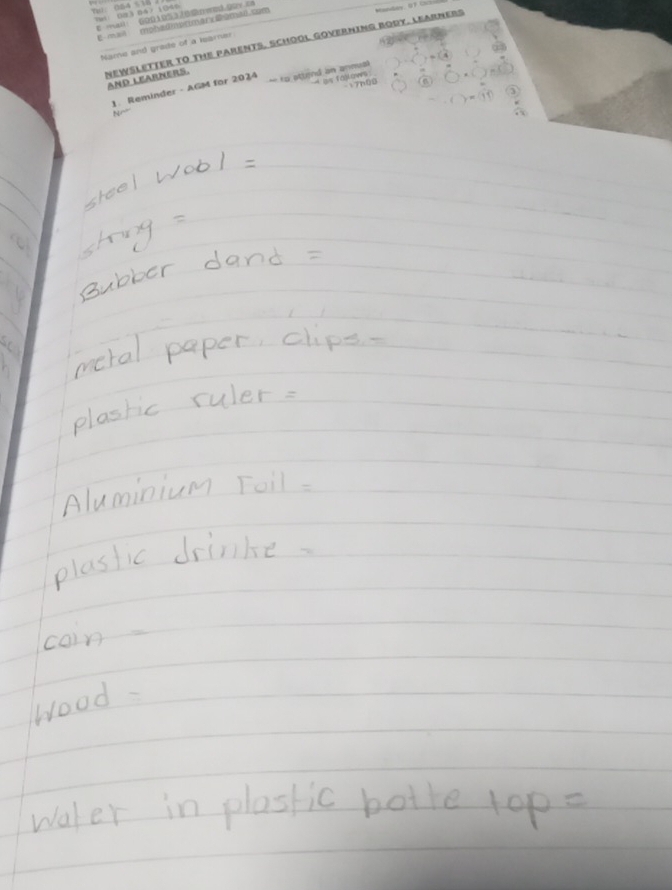 Name and grade of a learner:
NEWSLETTER TO THE PARENTS, SCHOOL GOVERNING BODY, LEARNERS
AND LEARNERS.
1. Reminder - AGM for 2024
to attend an annual
as follows:
17h00
steel wool =
string =
Bubber dand =
metal paper clips =
plastic ruler =
Aluminium Foil =
plastic drinke -
coin -
Wood =
Water in plastic botte top =